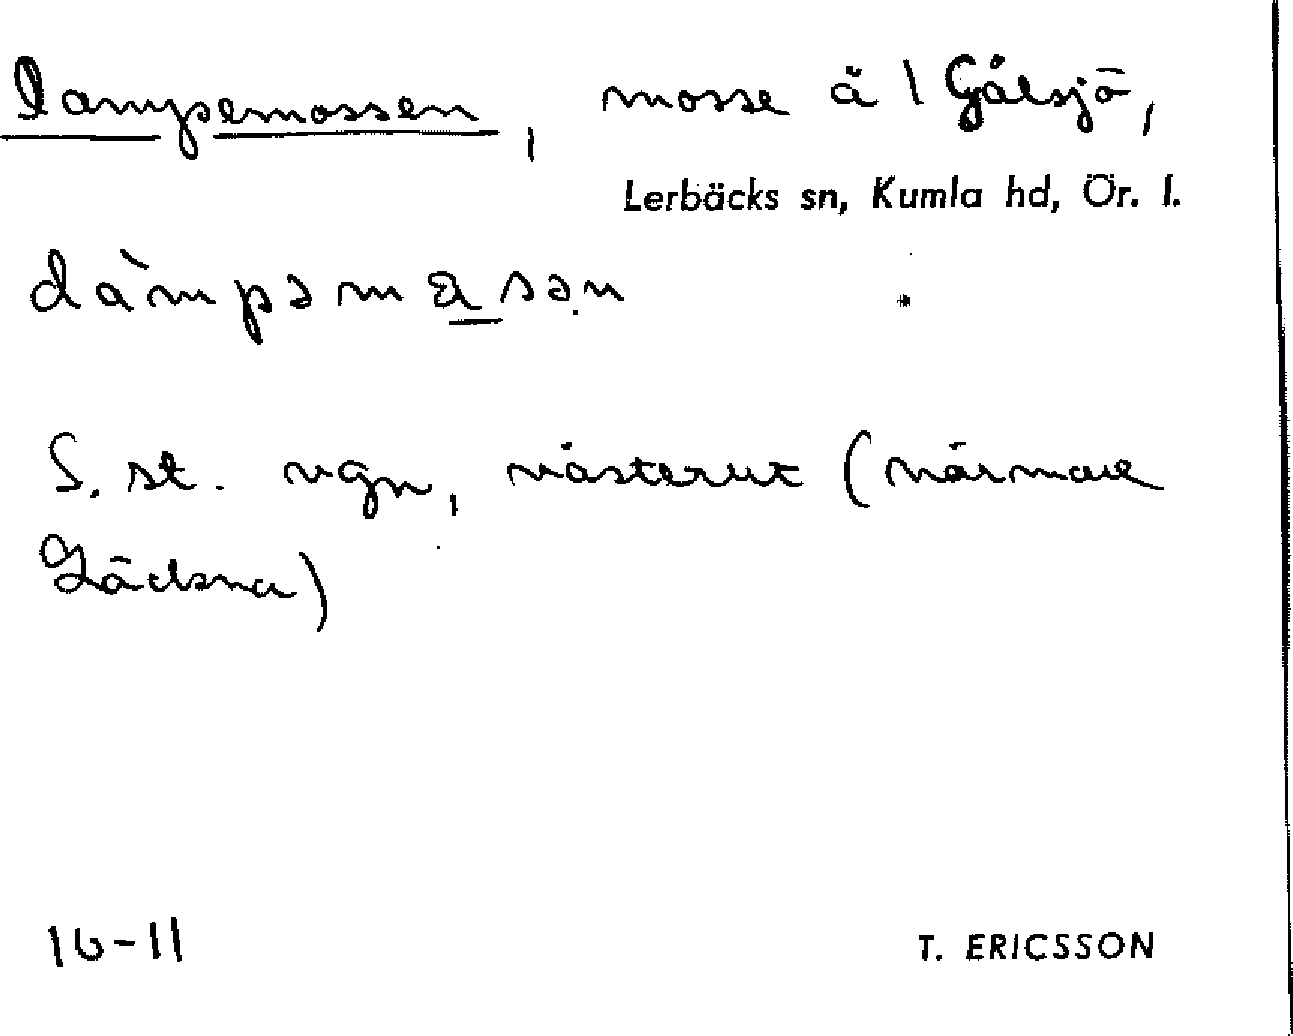 Dampemossen, mosse å 1 Gålsjö,
Lerbäcks sn, Kumla hd, Ör. l.
dàmpəmasən
S. st. vgn, västerut (närmare
16-11
T. ERICSSON